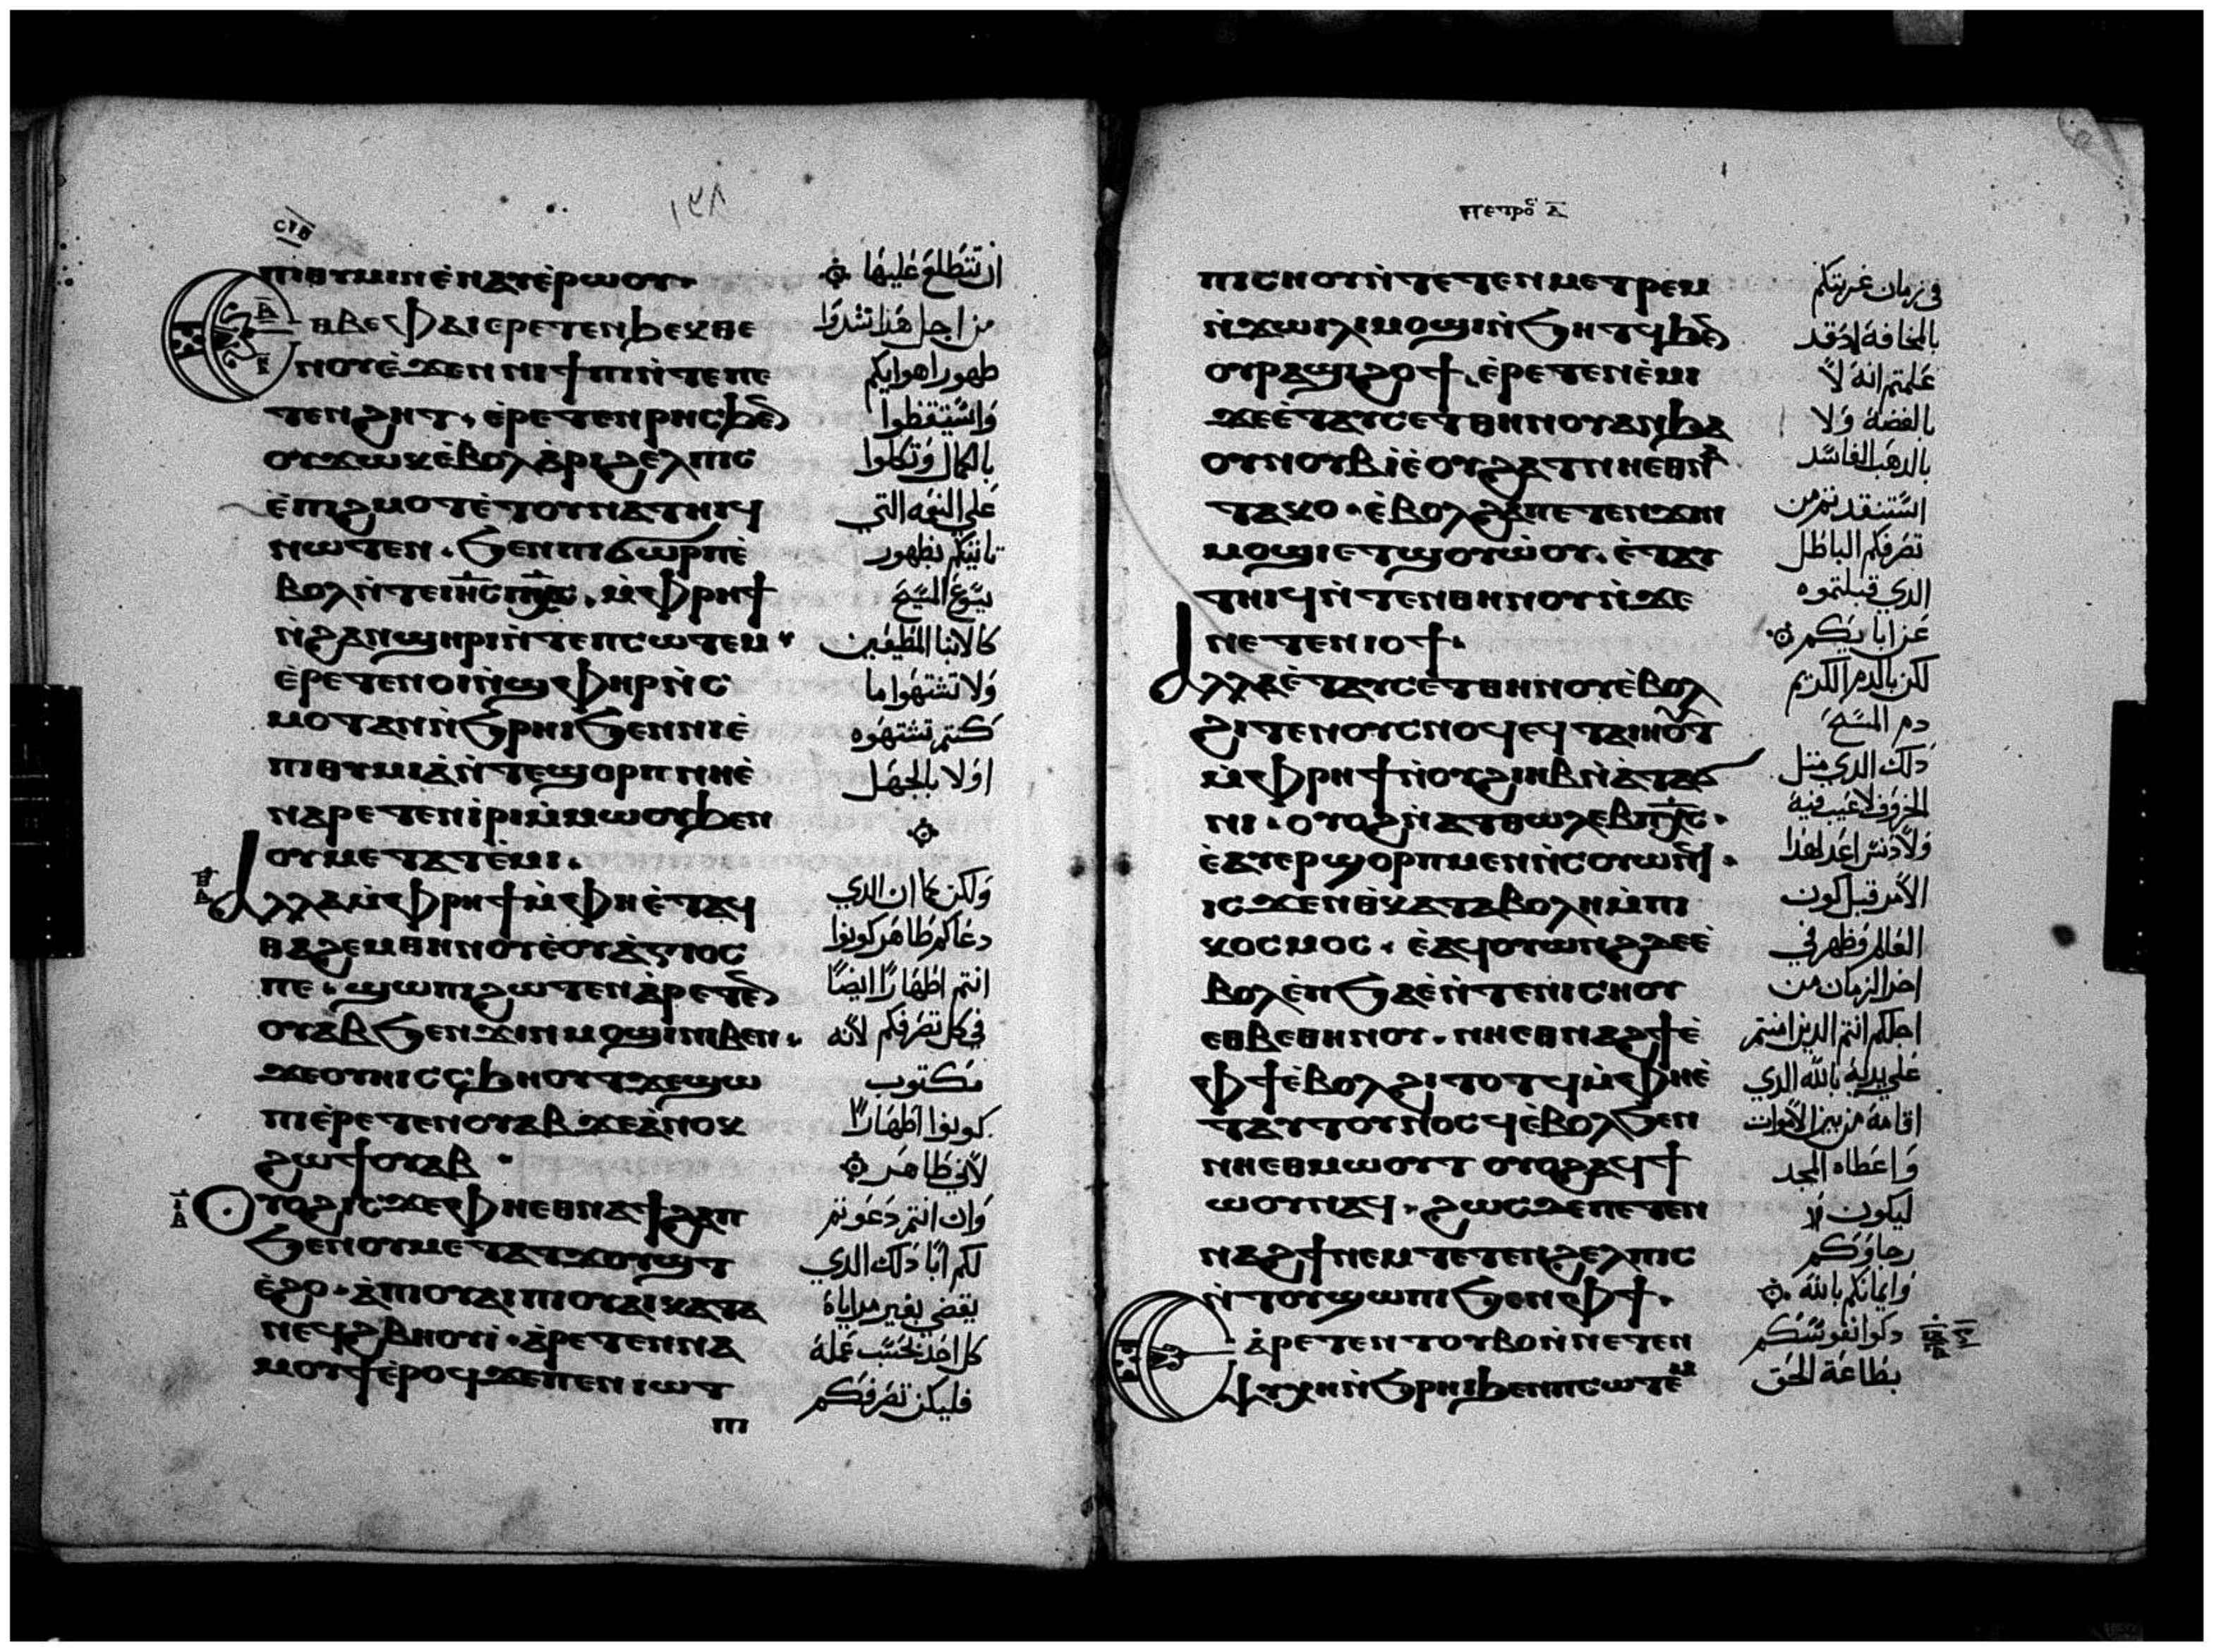 ⲥⲓⲃ
١٣٨
ⲡⲓⲑⲩⲙⲓⲛ ⲉ̀ⲛⲁⲩ ⲉ̀ⲣⲱⲟⲩ·
ⲉⲑⲃⲉ ⲫⲁⲓ ⲉⲣⲉⲧⲉⲛϧⲉⲭ ⲑⲉ
ⲛⲟⲩ ⲉ̀ϫⲉⲛ ⲛⲓϯⲡⲓ ⲛ̀ⲧⲉ ⲡⲉ
ⲧⲉⲛϩⲏⲧ· ⲉ̀ⲣⲉⲧⲉⲛⲣⲏⲥ ϧⲉⲛ
ⲟⲩϫⲱⲕ ⲉ̀ⲃⲟⲗ ⲁ̀ⲣⲓϩⲉⲗⲡⲓⲥ
ⲉ̀ⲡⲓϩⲙⲟⲧ ⲉ̀ⲧⲟⲩⲛⲁⲧⲏⲓϥ
ⲛⲱⲧⲉⲛ· ϧⲉⲛ ⲡⲓϭⲱⲣⲡ ⲉ̀
ⲃⲟⲗ ⲛ̀ⲧⲉ ⲓⲏ̅ⲥ̅ ⲡⲭ̅ⲥ̅· ⲙ̀ⲫⲣⲏϯ
ⲛ̀ϩⲁⲛϣⲏⲣⲓ ⲛ̀ⲧⲉ ⲡⲥⲱⲧⲉⲙ
ⲉ̀ⲣⲉⲧⲉⲛⲟⲓ ⲛ̀ϣⲫⲏⲣ ⲛ̀ⲥ
ⲙⲟⲧ ⲁⲛ ⲛ̀ϧⲣⲏⲓ ϧⲉⲛ ⲛⲓⲉ̀
ⲡⲓⲑⲩⲙⲓⲁ̀ ⲛ̀ⲧⲉ ϣⲟⲣⲡ ⲛⲏ ⲉ̀
ⲛⲁⲣⲉⲧⲉⲛⲓ̀ⲣⲓ ⲙ̀ⲙⲱⲟⲩ ϧⲉⲛ
ⲟⲩⲙⲉⲧⲁⲧⲉ̀ⲙⲓ·
ⲁⲗⲗⲁ ⲙ̀ⲫⲣⲏϯ ⲙ̀ⲫⲏ ⲉ̀ⲧⲁϥ
ⲑⲁϩⲉⲙ ⲑⲏⲛⲟⲩ ⲉ̀ⲟⲩⲁ̀ⲅⲓⲟⲥ
ⲡⲉ· ϣⲱⲡⲓ ϩⲱⲧⲉⲛ ⲁ̀ⲣⲉⲧⲉⲛ
ⲟⲩⲁⲃ ϧⲉⲛ ϫⲓⲛⲙⲟϣⲓ ⲛⲓⲃⲉⲛ·
ϫⲉⲟⲩⲏⲓ ⲥⲥϧⲏⲟⲩⲧ ϫⲉ ϣⲱ
ⲡⲓ ⲉ̀ⲣⲉⲧⲉⲛⲟⲩⲁⲃ ϫⲉ ⲁ̀ⲛⲟⲕ
ϩⲱ ϯⲟⲩⲁⲃ
ⲟⲩⲟϩ ⲓⲥϫⲉ ⲫⲏ ⲉⲑⲛⲁϯϩⲁⲡ
ϧⲉⲛ ⲟⲩⲙⲉⲧⲁⲧϫⲟⲩϣⲧ
ⲉ̀ϩⲟ· ⲁ̀ ⲡⲓⲟⲩⲁⲓ ⲡⲓⲟⲩⲁⲓ ⲕⲁⲧⲁ
ⲛⲉϥϩⲃⲏⲟⲩⲓ̀· ⲁ̀ⲣⲉⲧⲉⲛⲛⲁ
ⲙⲟⲩϯ ⲉ̀ⲣⲟϥ ϫⲉ ⲡⲉⲛⲓⲱⲧ
ⲡⲓ
ان تتطلع عليها
من اجل هذا شدوا
طهور اهوايكم
واستيقظوا
بالكمال وتكلوا
على النعمه التي
تاتيكم بظهور
يسوع المسيح
كالابنا المطيعين
ولا تشتهوا ما
كنتم تشتهوه
اولا بالجهل
ولكن كما ان الذي
دعاكم طاهر كونوا
انتم اطهارًا ايضًا
في كل تصرفكم لانه
مكتوب
كونوا اطهارًا
لاني طاهر
وان انتم دعوتم
لكم ابًا ذلك الذي
يقضي بغير مراياة
كل احد بحسب عمله
فليكن تصرفكم
ⲡⲉⲧⲣⲟⲥ ⲁ̅
ⲡⲓⲥⲛⲟⲩ ⲛ̀ⲧⲉ ⲧⲉⲧⲉⲛⲙⲉⲧⲣⲉⲙ
ⲛ̀ϫⲱⲓⲗⲓ ⲙⲟϣⲓ ⲛ̀ϧⲏⲧϥ ϧⲉⲛ
ⲟⲩⲣⲁϣⲓ ϩⲟϯ· ⲉ̀ⲣⲉⲧⲉⲛⲉ̀ⲙⲓ
ϫⲉ ⲉ̀ⲧⲁⲩⲥⲉⲧ ⲑⲏⲛⲟⲩ ⲁⲛ ϧⲁ
ⲟⲩⲛⲟⲩⲃ ⲓⲉ̀ ⲟⲩϩⲁⲧ ⲛⲏ ⲉⲑⲛⲁ
ⲧⲁⲕⲟ· ⲉ̀ⲃⲟⲗ ϩⲁ ⲡⲉⲧⲉⲛϫⲓⲛ
ⲙⲟϣⲓ ⲉⲧϣⲟⲩⲱ̀ⲟⲩ· ⲉ̀ⲧⲁⲩ
ⲧⲏⲓϥ ⲛ̀ⲧⲉⲛ ⲑⲏⲛⲟⲩ ⲛ̀ϫⲉ
ⲛⲉⲧⲉⲛⲓⲟϯ·
ⲁⲗⲗⲁ ⲉ̀ⲧⲁⲩⲥⲉⲧ ⲑⲏⲛⲟⲩ ⲉ̀ⲃⲟⲗ
ϩⲓⲧⲉⲛ ⲟⲩⲥⲛⲟϥ ⲉϥⲧⲁⲓⲏⲟⲩⲧ
ⲙ̀ⲫⲣⲏϯ ⲛ̀ⲟⲩϩⲓⲏⲃ ⲛ̀ⲁⲧⲁϭ
ⲛⲓ· ⲟⲩⲟϩ ⲛ̀ⲁⲧⲑⲱⲗⲉⲃ ⲡⲭ̅ⲥ̅·
ⲉ̀ⲁⲩⲉⲣϣⲟⲣⲡ ⲙⲉⲛ ⲛ̀ⲥⲟⲩⲱⲛϥ·
ⲓⲥϫⲉⲛ ⲑ̀ⲕⲁⲧⲁⲃⲟⲗⲏ ⲙ̀ⲡⲓ
ⲕⲟⲥⲙⲟⲥ· ⲉ̀ⲁϥⲟⲩⲱⲛϩ ⲇⲉ ⲉ̀
ⲃⲟⲗ ⲉ̀ⲡϧⲁⲉ̀ ⲛ̀ⲧⲉ ⲛⲓⲥⲛⲟⲩ
ⲉⲑⲃⲉ ⲑⲏⲛⲟⲩ· ⲛⲏ ⲉⲑⲛⲁϩϯ ⲉ̀
ⲫϯ ⲉ̀ⲃⲟⲗ ϩⲓⲧⲟⲧϥ ⲙ̀ⲫⲏ ⲉ̀
ⲧⲁⲩⲧⲟⲩⲛⲟⲥϥ ⲉ̀ⲃⲟⲗ ϧⲉⲛ
ⲛⲏ ⲉⲑⲙⲱⲟⲩⲧ ⲟⲩⲟϩ ⲁϥϯ
ⲱⲟⲩ ⲛⲁϥ· ϩⲱⲥⲇⲉ ⲡⲉⲧⲉⲛ
ⲛⲁϩϯ ⲛⲉⲙ ⲧⲉⲧⲉⲛϩⲉⲗⲡⲓⲥ
ⲛ̀ⲧⲟⲩϣⲱⲡⲓ ϧⲉⲛ ⲫϯ·
ⲉⲁ̀ⲣⲉⲧⲉⲛⲧⲟⲩⲃⲟ ⲛ̀ⲛⲉⲧⲉⲛ
ⲯⲩⲭⲏ ⲛ̀ϧⲣⲏⲓ ϧⲉⲛ ⲡⲥⲱⲧⲉⲙ
في زمان غربتكم
بالمخافة اذ قد
علمتم انه لا
بالفضة ولا
بالذهب الفاسد
استنقذتم من
تصرفكم الباطل
الذي قبلتموه
عن ابايكم
لكن بالدم الكريم
دم المسيح
ذلك الذي مثل
الخروف لا عيب فيه
ولا دنس اعد لهذا
الامر قبل كون
العالم فظهر في
اخر الزمان من
اجلكم انتم الذين امنتم
على يديه بالله الذي
اقامه من بين الاموات
واعطاه المجد
ليكون
رجاوكم
وايمانكم بالله
ذكوا نفوسكم
بطاعة الحق